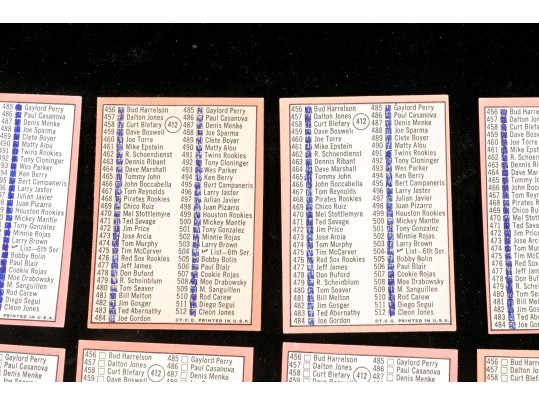 485 Gaylord Perry
486 Paul Casanova
487 Denis Menke
488 Joe Sparma
489 Clete Boyer
490 Matty Alou
491 Twins Rookies
492 Tony Cloninger
493 Wes Parker
494 Ken Berry
495 Bert Campaneris
496 Larry Jaster
497 Julian Javier
498 Juan Pizarro
499 Houston Rookies
500 Mickey Mantle
501 Tony Gonzalez
502 Minnie Rojas
503 Larry Brown
List—6th Ser.
Bobby Bolin
Paul Blair
Cookie Rojas
Moe Drabowsky
M. Sanguillen
Rod Carew
Diego Segui
Cleon Jones
PRINTED IN U.S.A.
456 Bud Harrelson
457 Dalton Jones
458 Curt Blefary
459 Dave Boswell
460 Joe Torre
461 Mike Epstein
462 R. Schoendienst
463 Dennis Ribant
464 Dave Marshall
465 Tommy John
466 John Boccabella
467 Tom Reynolds
468 Pirates Rookies
469 Chico Ruiz
470 Mel Stottlemyre
471 Ted Savage
472 Jim Price
473 Jose Arcia
474 Tom Murphy
475 Tim McCarver
476 Red Sox Rookies
477 Jeff James
478 Don Buford
479 R. Scheinblum
480 Tom Seaver
481 Bill Melton
482 Jim Gosger
483 Ted Abernathy
484 Joe Gordon
412
485 Gaylord Perry
486 Paul Casanova
487 Denis Menke
488 Joe Sparma
489 Clete Boyer
490 Matty Alou
491 Twins Rookies
492 Tony Cloninger
493 Wes Parker
494 Ken Berry
495 Bert Campaneris
496 Larry Jaster
497 Julian Javier
498 Juan Pizarro
499 Houston Rookies
500 Mickey Mantle
501 Tony Gonzalez
502 Minnie Rojas
503 Larry Brown
504 List—6th Ser.
505 Bobby Bolin
506 Paul Blair
507 Cookie Rojas
508 Moe Drabowsky
509 M. Sanguillen
510 Rod Carew
511 Diego Segui
512 Cleon Jones
©T.C.G. PRINTED IN U.S.A.
456 Bud Harrelson
457 Dalton Jones
458 Curt Blefary
459 Dave Boswell
460 Joe Torre
461 Mike Epstein
462 R. Schoendienst
463 Dennis Ribant
464 Dave Marshall
465 Tommy John
466 John Boccabella
467 Tom Reynolds
468 Pirates Rookies
469 Chico Ruiz
470 Mel Stottlemyre
471 Ted Savage
472 Jim Price
473 Jose Arcia
474 Tom Murphy
475 Tim McCarver
476 Red Sox Rookies
477 Jeff James
478 Don Buford
479 R. Scheinblum
480 Tom Seaver
481 Bill Melton
482 Jim Gosger
483 Ted Abernathy
484 Joe Gordon
412
485 Gaylord Perry
486 Paul Casanova
487 Denis Menke
488 Joe Sparma
489 Clete Boyer
490 Matty Alou
491 Twins Rookies
492 Tony Cloninger
493 Wes Parker
494 Ken Berry
495 Bert Campaneris
496 Larry Jaster
497 Julian Javier
498 Juan Pizarro
499 Houston Rookies
500 Mickey Mantle
501 Tony Gonzalez
502 Minnie Rojas
503 Larry Brown
504 List—6th Ser.
505 Bobby Bolin
506 Paul Blair
507 Cookie Rojas
508 Moe Drabowsky
509 M. Sanguillen
510 Rod Carew
511 Diego Segui
512 Cleon Jones
©T.C.G. PRINTED IN U.S.A.
456 Bud
457 Dalto
458 Curt
459 Dave
460
461 Mike
462
463
464 Dave
465
466 John
467 Tom
468
469 Chico
470 Mel
471
472 Jim
473 Jose
474 Tom
475 Tim
476 Red
477 Jeff
478 Don
479
480 Tom
481 Bill
482 Jim
483 Ted
484 Joe
Gaylord Perry
Paul Casanova
Denis Menke
Joe Sparma
456 Bud Harrelson
457 Dalton Jones
458 Curt Blefary
459 Dave Boswell
412
485 Gaylord Perry
486 Paul Casanova
487 Denis Menke
488 Joe Sparma
456 Bud Harrelson
457 Dalton Jones
458 Curt Blefary
459 Dave Boswell
412
485 Gaylord Perry
486 Paul Casanova
487 Denis Menke
456 Bud
457 Dalton
458 Curt
459